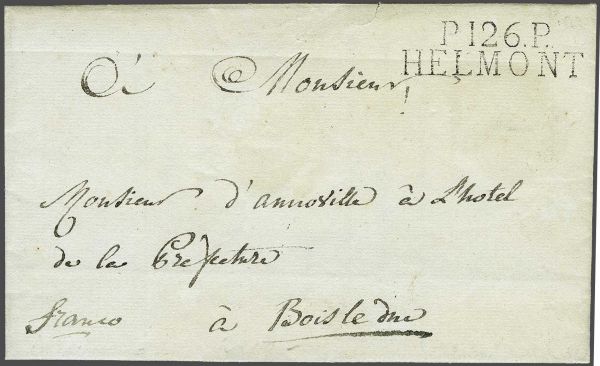 P.126.P.
HELMONT
à Monsieur
Monsieur d'annoville à L'hotel
de la Préfecture
franco à Bois le duc